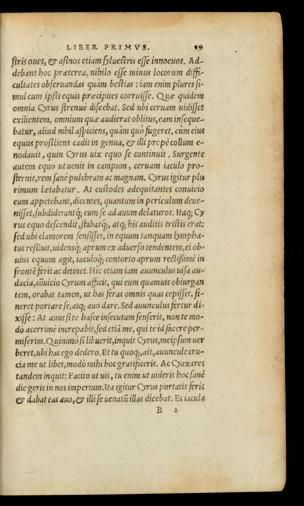 LIBER PRIMVS. 19
stris oues, & asinos etiam syluestris esse innocuos. Ad-
debant hoc præterea, nihilo esse minus locorum diffi-
cultates obseruandas quàm bestias: iam enim plures si-
mul cum ipsis equis præcipites corruisse. Quæ quidem
omnia Cyrus strenuè discebat. Sed ubi ceruam uidisset
exilientem, omnium quæ audierat oblitus, eam inseque-
batur, aliud nihil aspiciens, quàm quò fugeret, cùm eius
equus prosiliens cadit in genua, & illi propè collum e-
nodauit, quin Cyrus uix equo se continuit. Surgente
autem equo ut uenit in campum, ceruam iaculo pro-
sternit, rem sanè pulchram ac magnam. Cyrus igitur plu
rimum lætabatur. At custodes adequitantes conuicio
eum appetebant, dicentes, quantum in periculum deue-
nisset, subdiderantq; eum se ad auum delaturos. Itaq; Cy
rus equo descendit, stabatq;, atq; his auditis tristis erat:
sed ubi clamorem sensisset, in equum tanquam lympha-
tus resiluit, uidensq; aprum ex aduerso tendentem, ei ob-
uius equum agit, iaculoq; contorto aprum rectissimè in
frontē ferit ac detinet. Hic etiam iam auunculus uisa au-
dacia, cōuicio Cyrum afficit, qui eum quamuis obiurgan
tem, orabat tamen, ut has feras omnis quas cepisset, si-
neret portare se, atq; auo dare. Sed auunculus fertur di-
xisse: At auus si te hasce insecutum senserit, non te mo-
dò acerrimè increpabit, sed etiā me, qui te id facere per-
miserim. Quinimò si libuerit, inquit Cyrus, me ipsum uer
beret, ubi has ego dedero. Et tu quoq;, ait, auuncule cru-
cia me ut libet, modò mihi hoc gratificeris. Ac Cyaxares
tandem inquit: Facito ut uis, tu enim ut uideris hoc sanè
die geris in nos imperium. Ita igitur Cyrus portatis feris
& dabat eas auo, & illi se uenatū illas dicebat. Et iacula
B 2